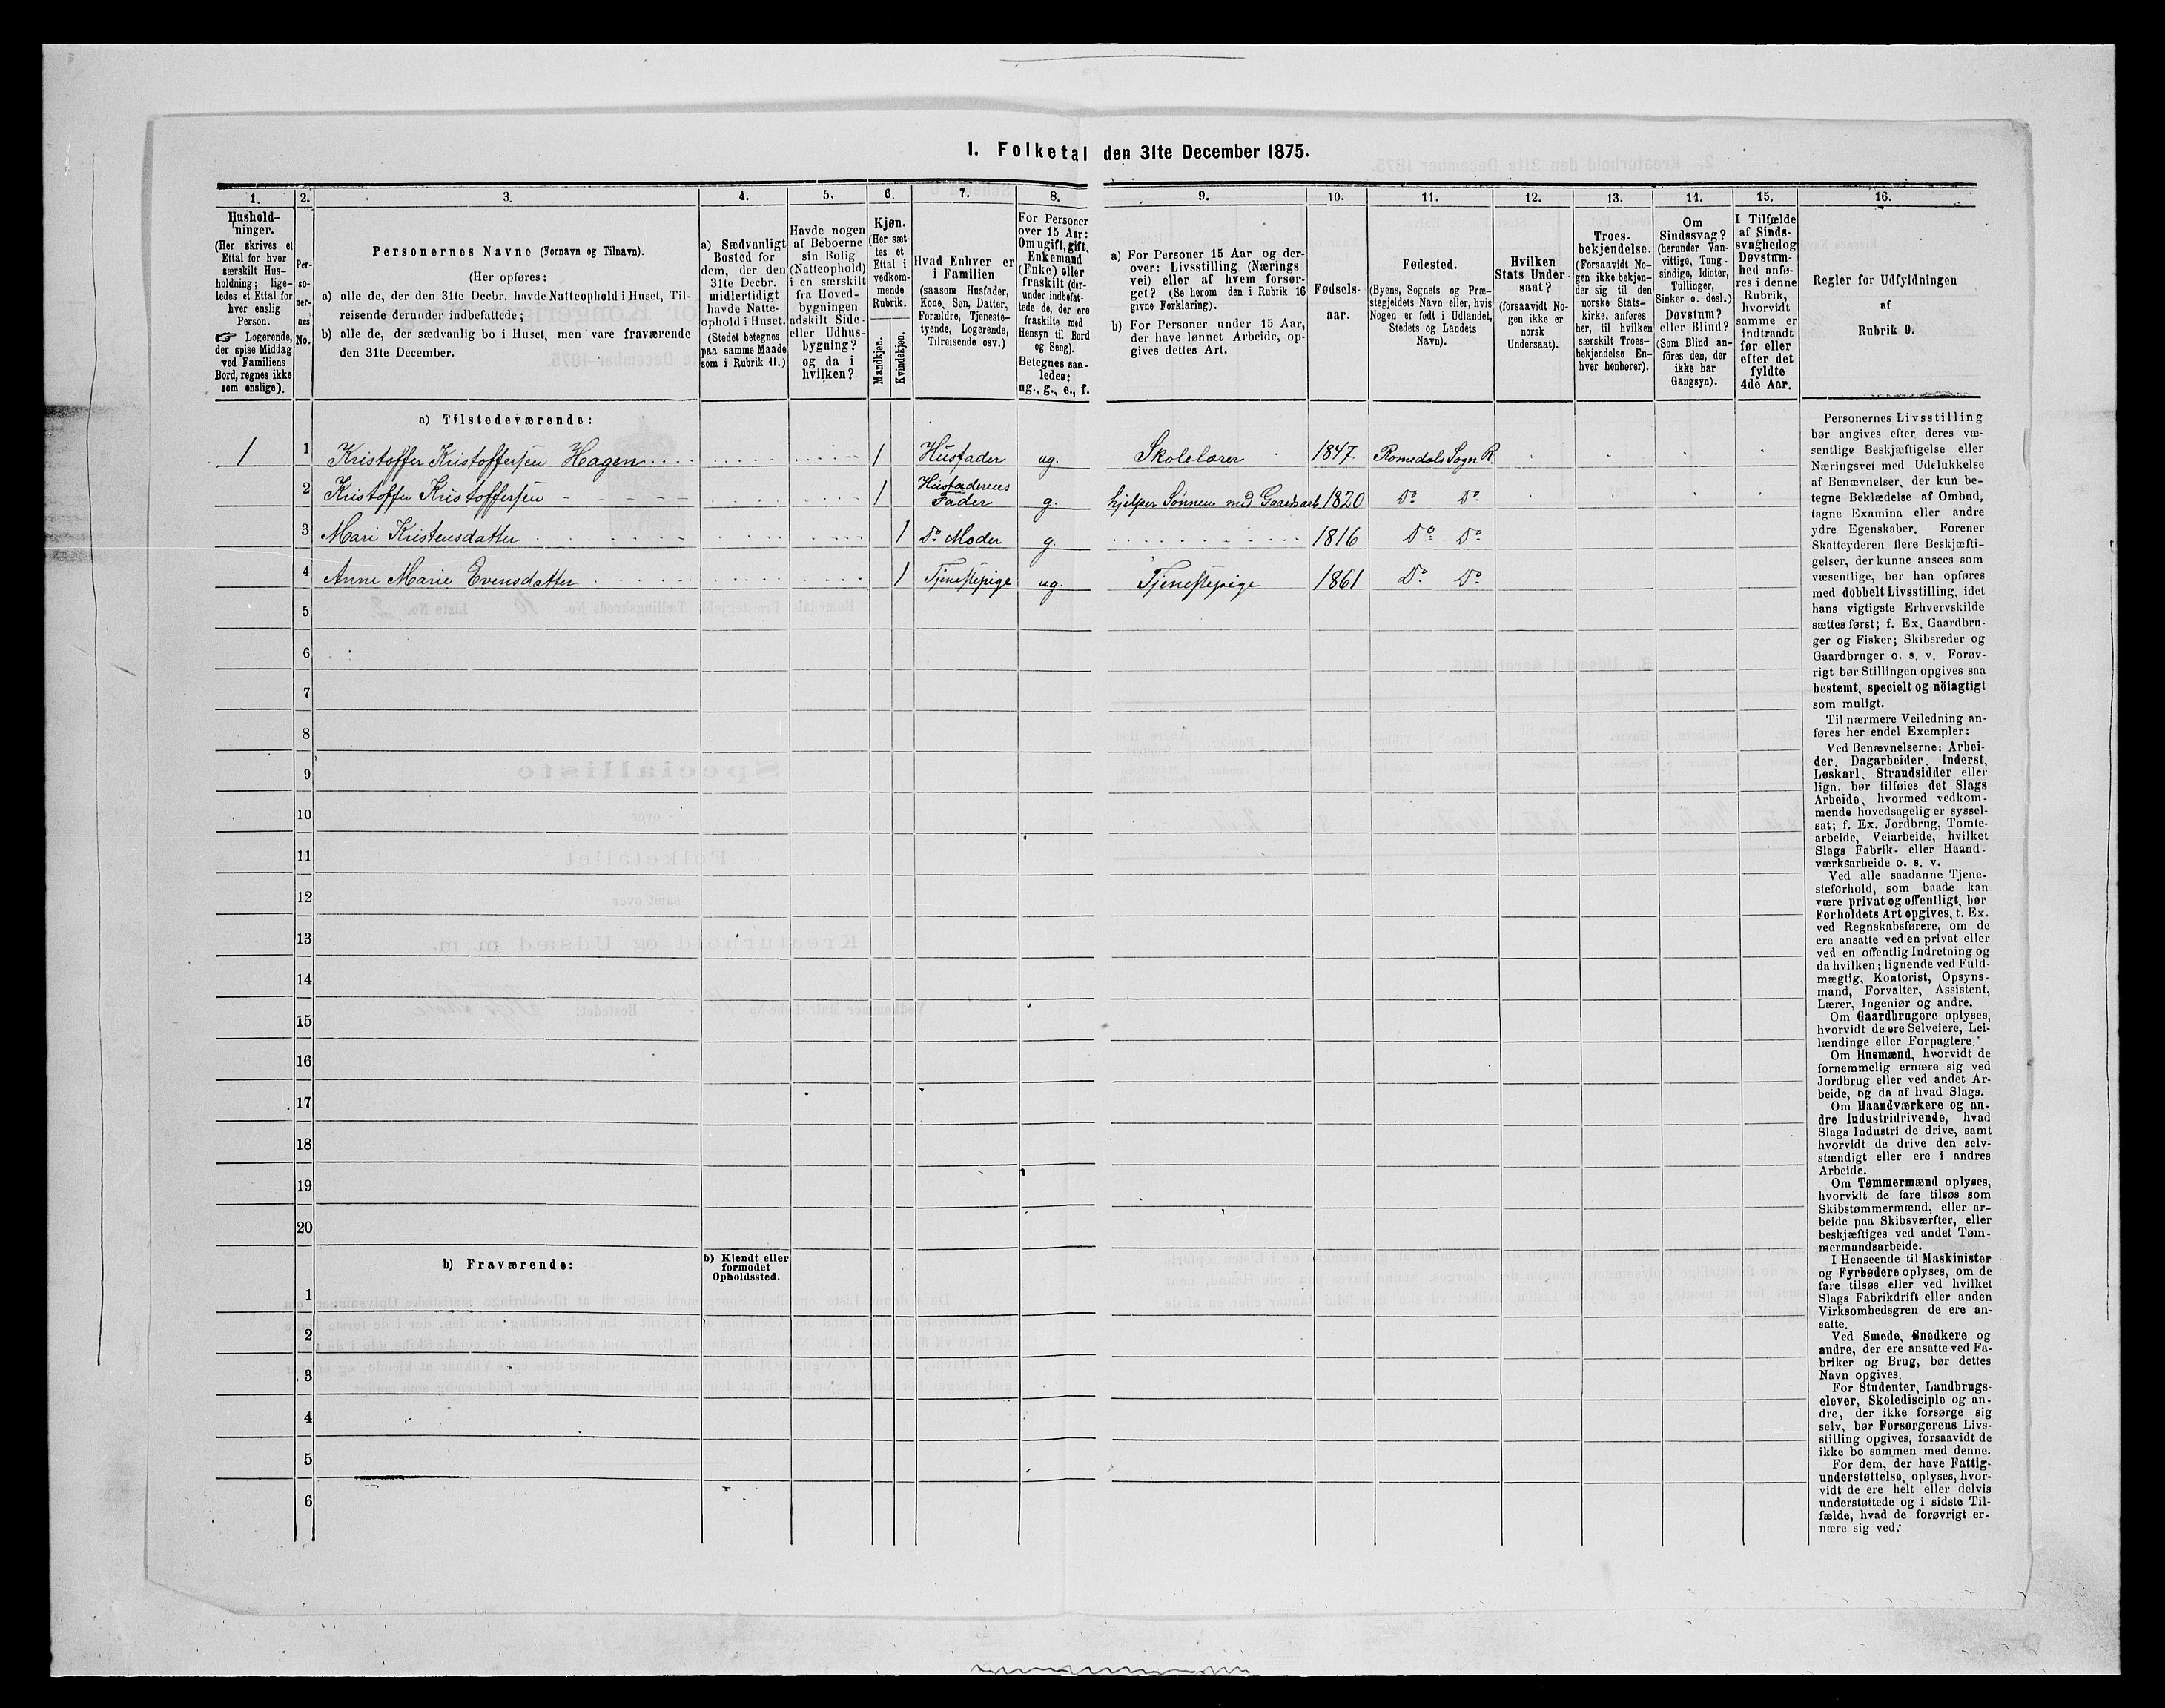 1. Folketal den 31te December 1875.
1.
Hushold-
ninger.
(Her skrives et
Ettal for hver
særskilt Hus-
holdning; lige-
ledes et Ettal for
hver enslig
Person.
☞ Logerende,
der spise Middag
ved Familiens
Bord, regnes ikke
som enslige).
2.
Per-
so-
ner-
nes
No.
3.
Personernes Navne (Fornavn og Tilnavn).
(Her opføres:
a) alle de, der den 31te Decbr. havde Natteophold i Huset, Til-
reisende derunder indbefattede;
b) alle de, der sædvanlig bo i Huset, men vare fraværende
den 31te December.
4.
a) Sædvanligt
Bosted for
dem, der den
31te Decbr.
midlertidigt
havde Natte-
ophold i Huset.
(Stedet betegnes
paa samme Maade
som i Rubrik 11.)
5.
Havde nogen
af Beboerne
sin Bolig
(Natteophold)
i en særskilt
fra Hoved-
bygningen
adskilt Side-
eller Udhus-
bygning?
og da i
hvilken?
6.
Kjøn.
(Her sæt-
tes et
Ettal i
vedkom-
mende
Rubrik.
Mandkjøn.
Kvindekjøn.
7.
Hvad Enhver er
i Familien
(saasom Husfader,
Kone, Søn, Datter,
Forældre, Tjeneste-
tyende, Logerende,
Tilreisende osv.)
8.
For Personer
over 15 Aar:
Om ugift, gift,
Enkemand
(Enke) eller
fraskilt (der-
under indbefat-
tede de, der ere
fraskilte med
Hensyn til Bord
og Seng).
Betegnes saa-
ledes:
ug., g., e., f.
9.
a) For Personer 15 Aar og der-
over: Livsstilling (Nærings
vei) eller af hvem forsør-
get? (Se herom den i Rubrik 16
givne Forklaring).
b) For Personer under 15 Aar,
der have lønnet Arbeide, op-
gives dettes Art.
10.
Fødsels-
aar.
11.
Fødested.
(Byens, Sognets og Præ-
stegjeldets Navn eller, hvis
Nogen er født i Udlandet,
Stedets og Landets
Navn).
12.
Hvilken
Stats Under-
saat?
(forsaavidt No-
gen ikke er
norsk
Undersaat).
13.
Troes-
bekjendelse.
(Forsaavidt No-
gen ikke bekjen-
der sig til den
norske Stats-
kirke, anføres
her, til hvilken
særskilt Troes-
bekjendelse En-
hver henhører).
14.
Om
Sindssvag?
(herunder Van-
vittige, Tung-
sindige, Idioter,
Tullinger,
Sinker o. desl.)
Døvstum?
eller Blind?
(Som Blind an-
føres den, der
ikke har
Gangsyn).
15.
I Tilfælde
af Sinds-
svaghed og
Døvstum-
hed anfø-
res i denne
Rubrik,
hvorvidt
samme er
indtraadt
før eller
efter det
fyldte
4de Aar.
16.
Regler for Udfyldningen
af
Rubrik 9.
a) Tilstedeværende:
1 1 Kristoffer Kristoffersen Hagen 1 Husfader ug. Skolelærer 1847 Romedals Sogn R.
2 Kristoffer Kristoffersen 1 Husfaderens Fader g. hjelper Sønnen med Gaardsarb. 1820 Do Do
3 Mari Kristensdatter 1 Do Moder g. 1816 Do Do
4 Anne Marie Evensdatter 1 Tjenestepige ug. Tjenestepige 1861 Do Do
5
6
7
8
9
10
11
12
13
14
15
16
17
18
19
20
b) Fraværende:
b) Kjendt eller
formodet
Opholdssted.
1
2
3
4
5
6
Personernes Livsstilling
bør angives efter deres væ-
sentlige Beskjæftigelse eller
Næringsvei med Udelukkelse
af Benævnelser, der kun be-
tegne Beklædelse af Ombud,
tagne Examina eller andre
ydre Egenskaber. Forener
Skatteyderen flere Beskjæfti-
gelser, der kunne ansees som
væsentlige, bør han opføres
med dobbelt Livsstilling, idet
hans vigtigste Erhvervskilde
sættes først; f. Ex. Gaardbru-
ger og Fisker; Skibsreder og
Gaardbruger o. s. v. Forøv-
rigt bør Stillingen opgives saa
bestemt, specielt og nöiagtigt
som muligt.
Til nærmere Veiledning an-
føres her endel Exempler:
Ved Benævnelserne: Arbei-
der, Dagarbeider, Inderst,
Løskarl, Strandsidder eller
lign. bør tilføies det Slags
Arbeide, hvormed vedkom-
mende hovedsagelig er syssel-
sat; f. Ex. Jordbrug, Tomte-
arbeide, Veiarbeide, hvilket
Slags Fabrik- eller Haand-
værksarbeide o. s. v.
Ved alle saadanne Tjene-
steforhold, som baade kan
være privat og offentligt, bør
Forholdets Art opgives, t. Ex.
ved Regnskabsførere, om de
ere ansatte ved en privat eller
ved en offentlig Indretning og
da hvilken; lignende ved Fuld-
mægtig, Kontorist, Opsyns-
mand, Forvalter, Assistent,
Lærer, Ingeniør og andre.
Om Gaardbrugere oplyses,
hvorvidt de ere Selveiere, Lei-
lændinge eller Forpagtere.
Om Husmænd, hvorvidt de
fornemmelig ernære sig ved
Jordbrug eller ved andet Ar-
beide, og da af hvad Slags.
Om Haandværkere og an-
dre Industridrivende, hvad
Slags Industri de drive, samt
hvorvidt de drive den selv-
stændigt eller ere i andres
Arbeide.
Om Tømmermænd oplyses,
hvorvidt de fare tilsøs som
Skibstømmermænd, eller ar-
beide paa Skibsværfter, eller
beskjæftiges ved andet Tøm-
mermandsarbeide.
I Henseende til Maskinister
og Fyrbødere oplyses, om de
fare tilsøs eller ved hvilket
Slags Fabrikdrift eller anden
Virksomhedsgren de ere an-
satte.
Ved Smede, Snedkere og
andre, der ere ansatte ved Fa-
briker og Brug, bør dettes
Navn opgives.
For Studenter, Landbrugs-
elever, Skoledisciple og an-
dre, der ikke forsørge sig
selv, bør Forsørgerens Livs-
stilling opgives, forsaavidt de
ikke bo sammen med denne.
For dem, der have Fattig-
understøttelse, oplyses, hvor-
vidt de ere helt eller delvis
understøttede og i sidste Til-
fælde, hvad de forøvrigt er-
nære sig ved.